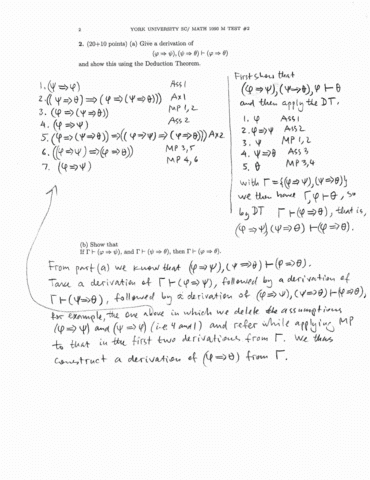 2 YORK UNIVERSITY SC/ MATH 1090 M TEST #3
2. (20+10 points) (a) Give a derivation of
(φ ⇒ ψ), (ψ ⇒ θ) ⊢ (φ ⇒ θ)
and show this using the Deduction Theorem.
1. (ψ ⇒ θ) Ass 1
2. ((ψ ⇒ θ) ⇒ (φ ⇒ (ψ ⇒ θ))) Ax1
3. (φ ⇒ (ψ ⇒ θ)) MP 1,2
4. (φ ⇒ ψ) Ass 2
5. (φ ⇒ (ψ ⇒ θ)) ⇒ ((φ ⇒ ψ) ⇒ (φ ⇒ θ))) Ax2
6. ((φ ⇒ ψ) ⇒ (φ ⇒ θ)) MP 3,5
7. (φ ⇒ θ) MP 4,6
First show that
(φ ⇒ ψ), (ψ ⇒ θ), φ ⊢ θ
and then apply the DT.
1. φ Ass 1
2. φ ⇒ ψ Ass 2
3. ψ MP 1,2
4. ψ ⇒ θ Ass 3
5. θ MP 3,4
with Γ = {(φ ⇒ ψ), (ψ ⇒ θ)}
we then have Γ, φ ⊢ θ, so
by DT Γ ⊢ (φ ⇒ θ), that is,
(φ ⇒ ψ), (ψ ⇒ θ) ⊢ (φ ⇒ θ).
(b) Show that
If Γ ⊢ (φ ⇒ ψ), and Γ ⊢ (ψ ⇒ θ), then Γ ⊢ (φ ⇒ θ).
From part (a) we know that (φ ⇒ ψ), (ψ ⇒ θ) ⊢ (φ ⇒ θ).
Take a derivation of Γ ⊢ (φ ⇒ ψ), followed by a derivation of
Γ ⊢ (ψ ⇒ θ), followed by a derivation of (φ ⇒ ψ), (ψ ⇒ θ) ⊢ (φ ⇒ θ),
for example, the one above in which we delete the assumptions
(φ ⇒ ψ) and (ψ ⇒ θ) (i.e 4 and 1) and refer while applying MP
to that in the first two derivations from Γ. We thus
construct a derivation of (φ ⇒ θ) from Γ.